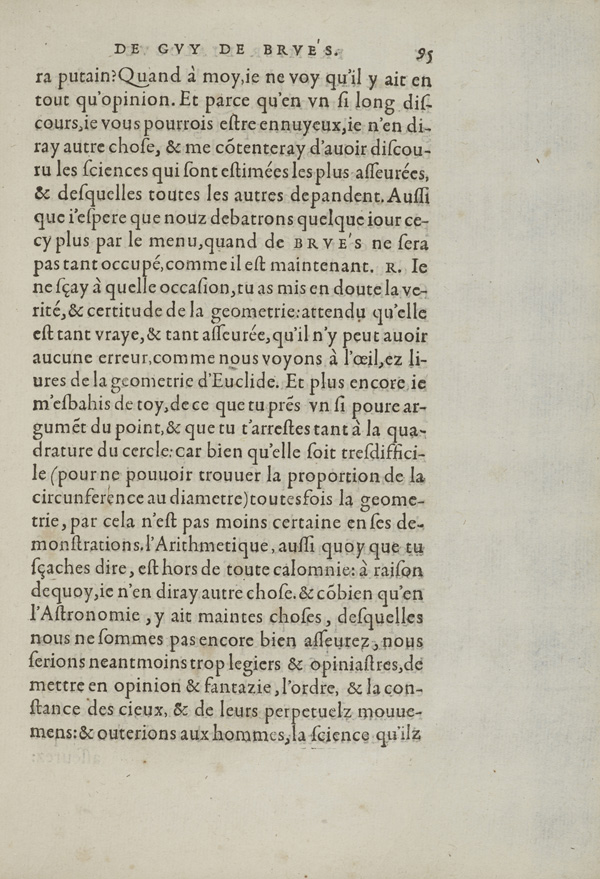 DE GVY DE BRVE'S. 95
ra putain? Quand à moy, ie ne voy qu'il y ait en
tout qu'opinion. Et parce qu'en vn ſi long diſ-
cours, ie vous pourrois eſtre ennuyeux, ie n'en di-
ray autre choſe, & me cõtenteray d'auoir diſcou-
ru les ſciences qui ſont eſtimées les plus aſſeurées,
& deſquelles toutes les autres depandent. Auſſi
que i'eſpere que nouz debatrons quelque iour ce-
cy plus par le menu, quand de BRVE'S ne ſera
pas tant occupé, comme il eſt maintenant. R. Ie
ne ſçay à quelle occaſion, tu as mis en doute la ve-
rité, & certitude de la geometrie: attendu qu'elle
eſt tant vraye, & tant aſſeurée, qu'il n'y peut auoir
aucune erreur, comme nous voyons à l'œil, ez li-
ures de la geometrie d'Euclide. Et plus encore ie
m'eſbahis de toy, de ce que tu prẽs vn ſi poure ar-
gumẽt du point, & que tu t'arreſtes tant à la qua-
drature du cercle: car bien qu'elle ſoit treſdiffici-
le (pour ne pouuoir trouuer la proportion de la
circunference au diametre) toutesfois la geome-
trie, par cela n'eſt pas moins certaine en ſes de-
monſtrations. l'Arithmetique, auſſi quoy que tu
ſçaches dire, eſt hors de toute calomnie: à raiſon
dequoy, ie n'en diray autre choſe. & cõbien qu'en
l'Aſtronomie, y ait maintes choſes, deſquelles
nous ne ſommes pas encore bien aſſeurez, nous
ſerions neantmoins trop legiers & opiniaſtres, de
mettre en opinion & fantazie, l'ordre, & la con-
ſtance des cieux, & de leurs perpetuelz mouue-
mens: & outerions aux hommes, la ſcience qu'ilz